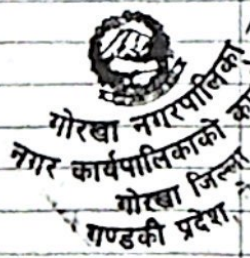 गोरखा नगरपालिका
नगर कार्यपालिकाको
गोरखा जिल्ला
गण्डकी प्रदेश,